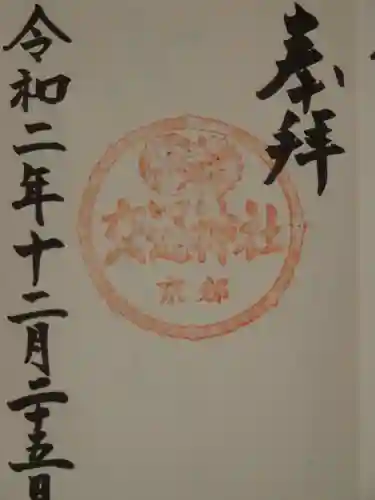 奉拝
交通神社
京都
令和二年十二月二十五日